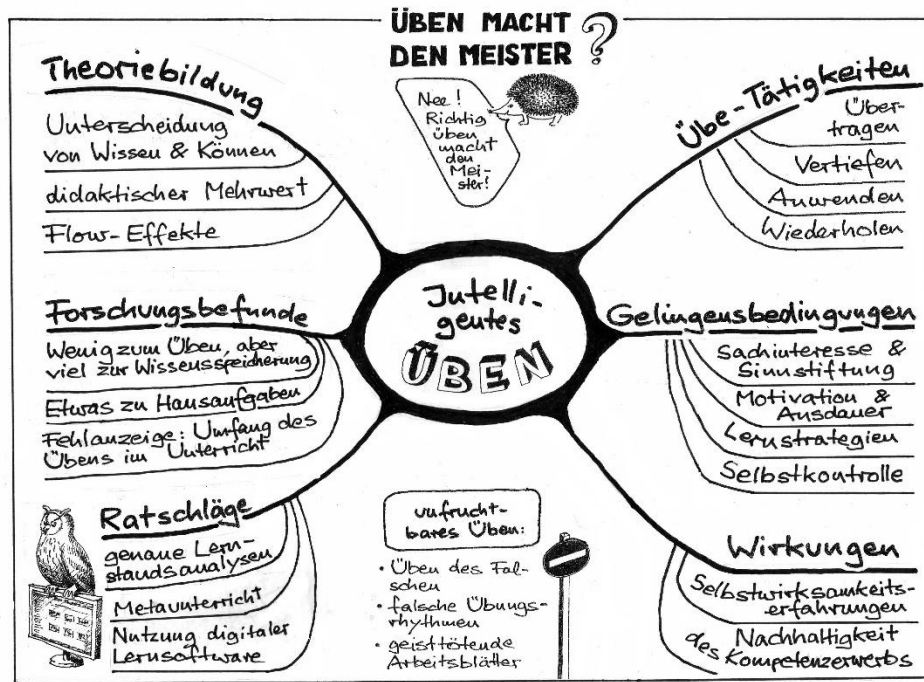 ÜBEN MACHT
DEN MEISTER ?
Nee!
Richtig
üben
macht
den
Mei-
ster!
Theoriebildung
Unterscheidung
von Wissen & Können
didaktischer Mehrwert
Flow-Effekte
Forschungsbefunde
Wenig zum Üben, aber
viel zur Wissensspeicherung
Etwas zu Hausaufgaben
Fehlanzeige: Umfang des
Übens im Unterricht
Ratschläge
genaue Lern-
standsanalysen
Metaunterricht
Nutzung digitaler
Lernsoftware
Intelli-
gentes
ÜBEN
unfrucht-
bares Üben:
• Üben des Fal-
schen
• falsche Übungs-
rhythmen
• geisttötende
Arbeitsblätter
Übe-Tätigkeiten
Über-
tragen
Vertiefen
Anwenden
Wiederholen
Gelingensbedingungen
Sachinteresse &
Sinnstiftung
Motivation &
Ausdauer
Lernstrategien
Selbstkontrolle
Wirkungen
Selbstwirksamkeits-
erfahrungen
Nachhaltigkeit
des Kompetenzerwerbs